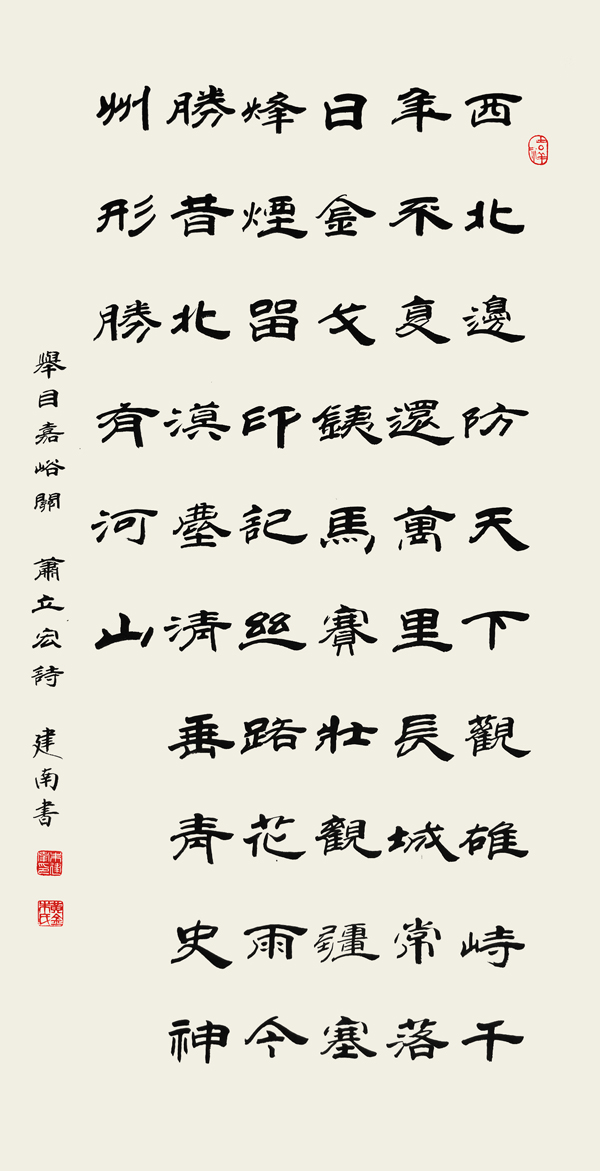 西北邊防天下觀雄峙千
年不复還萬里長城常落
日金戈銕馬賽壯觀疆塞
烽煙留印記絲路花雨今
勝昔北漠塵清垂青史神
州形勝有河山
舉目嘉峪關 蕭立宏詩 建南書